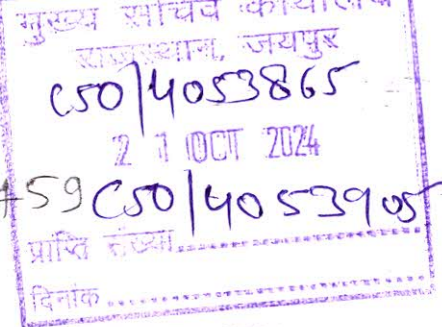 मुख्य सचिव कार्यालय
राजस्थान, जयपुर
CSO/4053865
21 OCT 2024
59 CSO/4053905
प्राप्ति संख्या
दिनांक